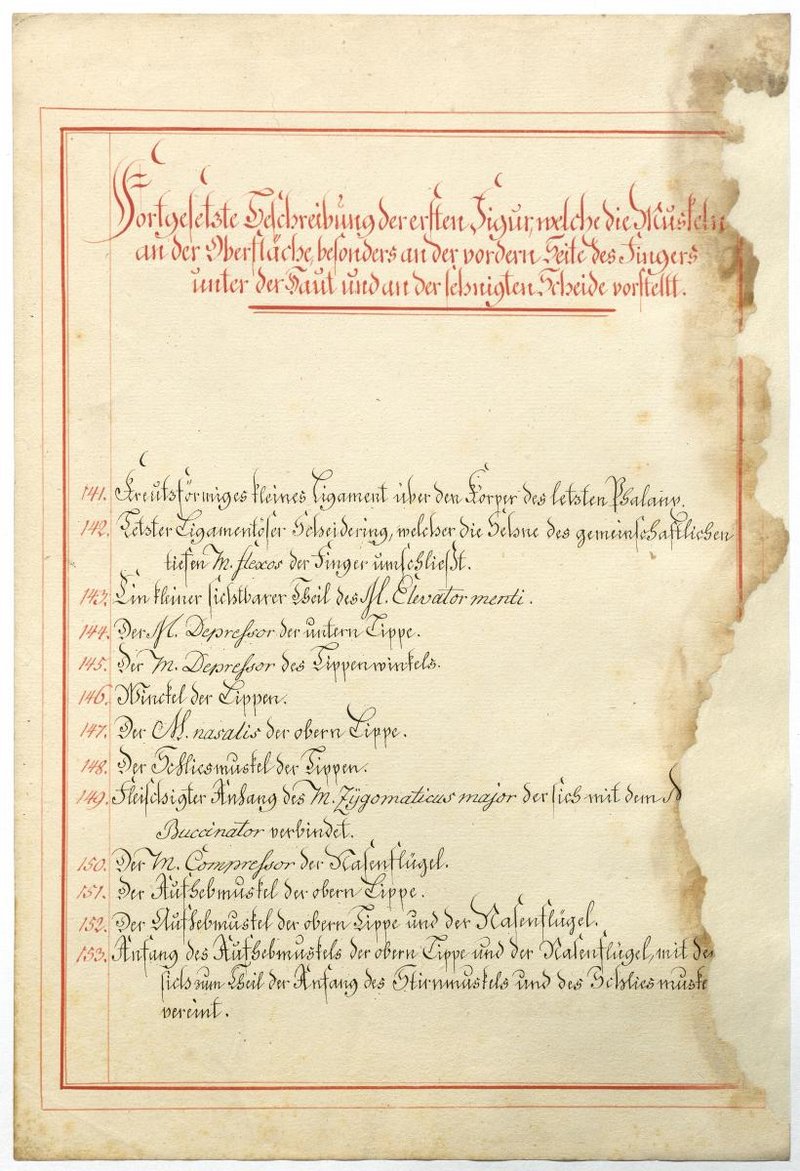 Fortgesetzte Beschreibung der ersten Figur, welche die Muskeln
an der Oberfläche, besonders an der vordern Seite des Fingers
unter der Haut und an der sehnigten Scheide vorstellt.
141. Kreutsförmiges kleines Ligament über den Körper des letsten Phalanx.
142. Letster Ligamentöser Scheidering, welcher die Sehne des gemeinschaftlichen
tiefen M. flexos der Finger umschließt.
143. Ein kleiner sichtbarer Theil des M. Elevator menti.
144. Der M. Depressor der untern Lippe.
145. Der M. Depressor des Lippenwinkels.
146. Winckel der Lippen.
147. Der M. nasalis der obern Lippe.
148. Der Schliesmuskel der Lippen.
149. Fleischigter Anhang des M. Zÿgomaticus major der sich mit dem
Buccinator verbindet.
150. Der M. Compressor der Nasenflügel.
151. Der Aufhebmuskel der obern Lippe.
152. Der Aufhebmuskel der obern Lippe und der Nasenflügel.
153. Anfang des Aufhebmuskels der obern Lippe und der Nasenflügel, mit de
sich zum Theil der Anfang des Stirnmuskels und des Schliesmuske
vereint.